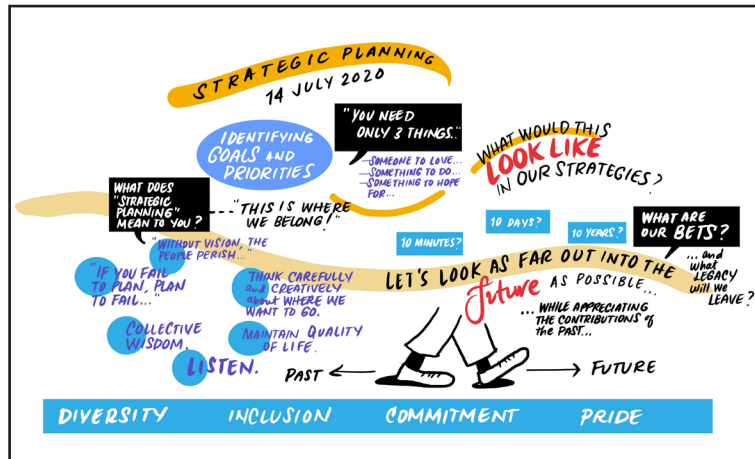 STRATEGIC PLANNING
14 JULY 2020
IDENTIFYING
GOALS AND
PRIORITIES
"YOU NEED
ONLY 3 THINGS..."
—SOMEONE TO LOVE...
—SOMETHING TO DO...
—SOMETHING TO HOPE
FOR...
WHAT WOULD THIS
LOOK LIKE
IN OUR STRATEGIES?
WHAT DOES
"STRATEGIC
PLANNING"
MEAN TO YOU?
"THIS IS WHERE
WE BELONG!"
"WITHOUT VISION, THE
PEOPLE PERISH..."
"IF YOU FAIL
TO PLAN, PLAN
TO FAIL..."
THINK CAREFULLY
and CREATIVELY
about WHERE WE
WANT TO GO.
COLLECTIVE
WISDOM.
MAINTAIN QUALITY
OF LIFE.
LISTEN.
10 MINUTES?
10 DAYS?
10 YEARS?
WHAT ARE
OUR BETS?
...and
what
LEGACY
will we
LEAVE?
LET'S LOOK AS FAR OUT INTO THE
future AS POSSIBLE...
...WHILE APPRECIATING
THE CONTRIBUTIONS of
THE PAST...
PAST
FUTURE
DIVERSITY INCLUSION COMMITMENT PRIDE